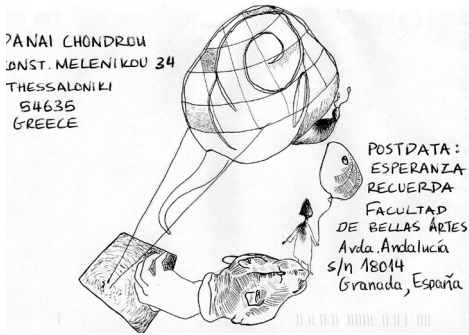 PANAI CHONDROU
CONST. MELENIKOU 34
THESSALONIKI
54635
GREECE
POSTDATA:
ESPERANZA
RECUERDA
FACULTAD
DE BELLAS ARTES
Avda. Andalucía
s/n 18014
Granada, España